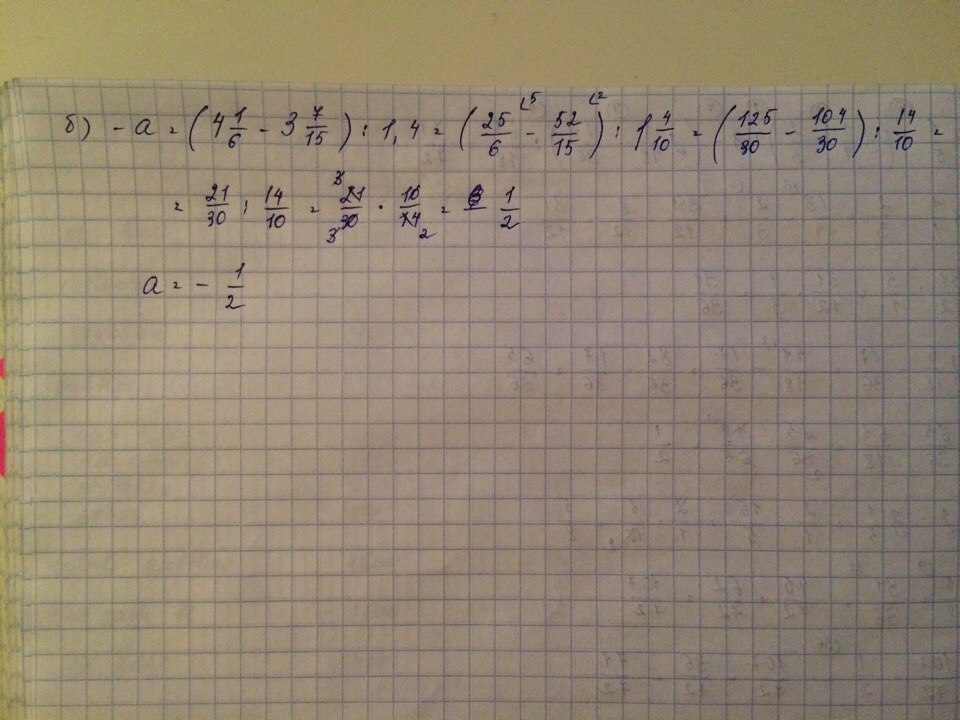 б) - a = (4 1/6 - 3 7/15) : 1,4 = (25/6 ⌊5 - 52/15 ⌊2) : 1 4/10 = (125/30 - 104/30) : 14/10 =
= 21/30 : 14/10 = 21/30 3 3 · 10/14 2 = 1/2
a = - 1/2